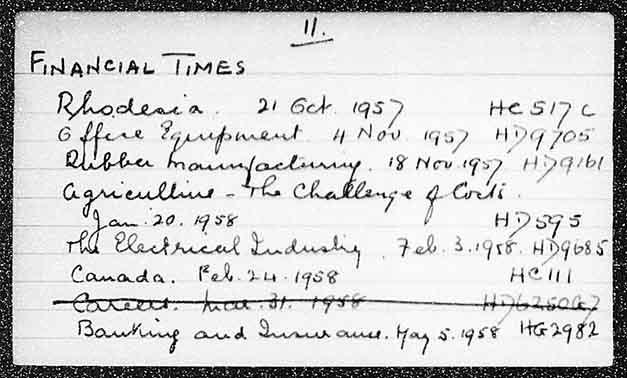 11.
FINANCIAL TIMES
Rhodesia. 21 Oct. 1957 HC 517 C
Office Equipment 4 Nov. 1957 HD9705
Rubber manufacturing. 18 Nov. 1957 HD9161
Agriculture - The Challenge of Costs.
Jan. 20. 1958 HD595
The Electrical Industry. Feb. 3. 1958. HD9685
Canada. Feb. 24. 1958 HC111
Careers. Mar. 31. 1958
Banking and Insurance. May 5. 1958 HG2982